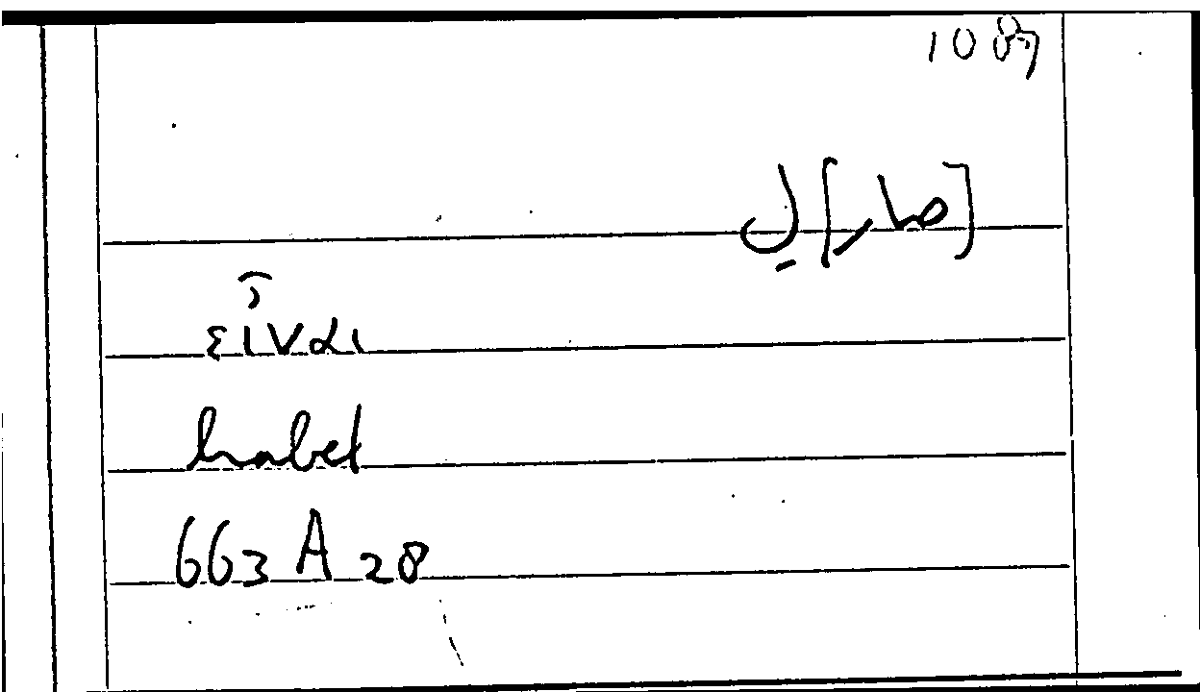 [صار] لِ
εἶναι
habet
663 A 28